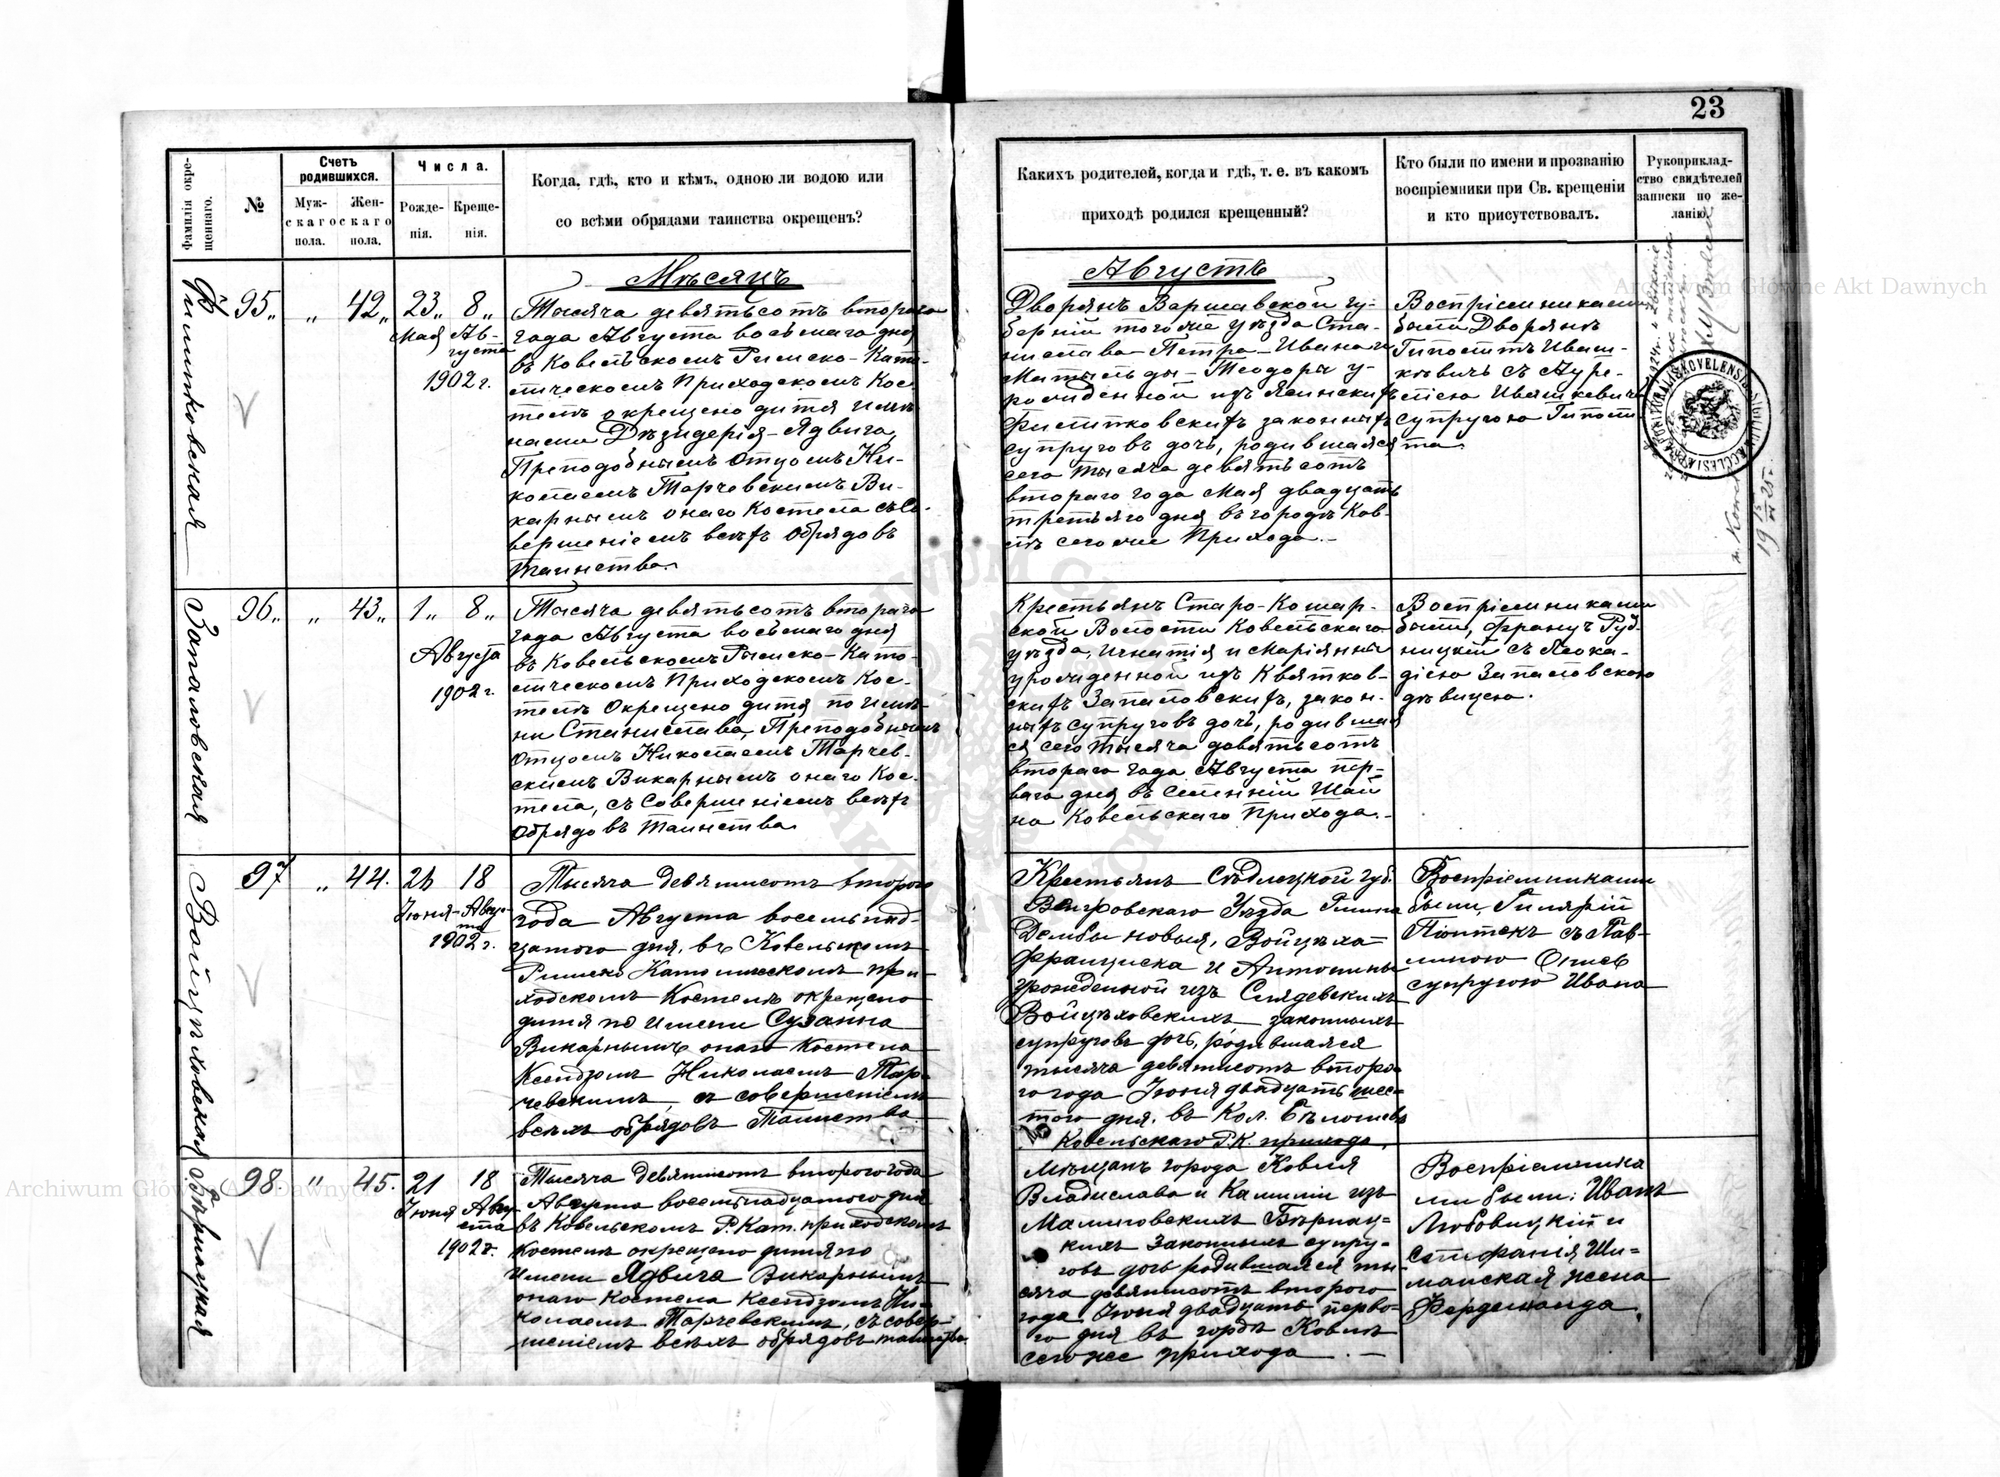 23
Фамилія окре-
щеннаго.
№
Счетъ
родившихся.
Муж-
скаго
пола.
Жен-
скаго
пола.
Числа.
Рожде-
нія.
Креще-
нія.
Когда, гдѣ, кто и кѣмъ, одною ли водою или
со всѣми обрядами таинства окрещенъ?
Какихъ родителей, когда и гдѣ, т. е. въ какомъ
приходѣ родился крещенный?
Кто были по имени и прозванію
воспріемники при Св. крещеніи
и кто присутствовалъ.
Рукоприклад-
ство свидѣтелей
записки по же-
ланію.
Мѣсяцъ
Августъ
95„
„
42„
23„ 8„
Мая Ав-
густа
1902 г.
Тысяча девятьсотъ втораго
года Августа восьмаго дня
въ Ковельскомъ Римско-Като-
лическомъ Приходскомъ Кос-
телѣ окрещено дитя име-
нами Дезидерія-Ядвига,
Преподобнымъ Отцомъ Ни-
колаемъ Тарчевскимъ Ви-
карнымъ онаго Костела съ Со-
вершеніемъ всѣхъ Обрядовъ
Таинства.
Дворянъ Варшавской гу-
берніи тогоже уѣзда Ста-
нислава-Петра-Ивана и
Матыльды-Теодоры у-
рожденной изъ Ясинскихъ
супруговъ дочь, родившаяся
сего тысяча девятьсотъ
втораго года Мая двадцать
третьяго дня въ городѣ Ков-
лѣ сегоже Прихода.-
Воспріемниками
были Дворянъ
Гиполитъ Иваш-
кевичъ съ Ауре-
ліею Ивашкевичъ
супругою Гиполи-
та.
Запаловская
96„
„
43„
1„ 8„
Августа
1902 г.
Тысяча девятьсотъ втораго
года Августа восьмаго дня
въ Ковельскомъ Римско-Като-
лическомъ Приходскомъ Кос-
телѣ Окрещено дитя по име-
ни Станислава, Преподобнымъ
Отцомъ Николаемъ Тарчев-
скимъ Викарнымъ онаго Кос-
тела, съ Совершеніемъ всѣхъ
Обрядовъ Таинства.
Крестьянъ Старо-Кошар-
ской Волости Ковельскаго
уѣзда, Игнатія и Маріянны
урожденной изъ Квятков-
скихъ Запаловскихъ, закон-
ныхъ супруговъ дочь, родившая
ся сего тысяча девятьсотъ
втораго года Августа пер-
ваго дня въ
на Ковельскаго Прихода.-
Воспріемниками
были, Францъ Руд-
ницкій съ Леока-
діею Запаловскою
дѣвицею.
Войцѣховская
97
„
44.
26 18
Іюня-Авгу-
ста
1902 г.
Тысяча девятисотъ второго
года Августа восемьнад-
цатого дня, въ Ковельскомъ
Римско Католическомъ при-
ходскомъ Костелѣ окрещено
дитя по имени Сузанна
Викарнымъ онаго костела
Ксендзомъ Николаемъ Тар-
чевскимъ, съ совершеніемъ
всѣхъ обрядовъ Таинства
Крестьянъ Сѣдлецкой губ.
Венгровскаго Уѣзда Гмина
Дембы новыя, Войцѣха-
Франциска и Антонины
урожденной изъ
Войцѣховскихъ законныхъ
супруговъ дочь, родившаяся
тысяча девятисотъ второ-
го года Іюня двадцать шес-
того дня, въ Кол.
Ковельскаго Р.К. прихода.
Воспріемниками
были, Гилярій
Піонтекъ съ Пав-
линою
супругою Ивана
98.
„
45.
21 18
Іюня Авгу-
ста
1902 г.
Тысяча девятисотъ второго года
Августа восемьнадцатого дня
въ Ковельскомъ Р. Кат. приходскомъ
костелѣ окрещено дитя по
имени Ядвига Викарнымъ
онаго костела Ксендзомъ Ни-
колаемъ Тарчевскимъ, съ совер-
шеніемъ всѣхъ обрядовъ таинства
Мѣщанъ города Ковля
Владислава и Камиліи изъ
Малиновскихъ Бѣрнац-
кихъ Законныхъ супру-
говъ дочь родившаяся ты-
сяча девятисотъ второго
года Іюня двадцать перво-
го дня въ городѣ Ковлѣ
сегоже прихода.-
Воспріемника-
ми были: Иванъ
Любовицкій и
Стефанія Ши-
манская жена
Фердинанда.
Archiwum Główne Akt Dawnych
Archiwum Główne Akt Dawnych